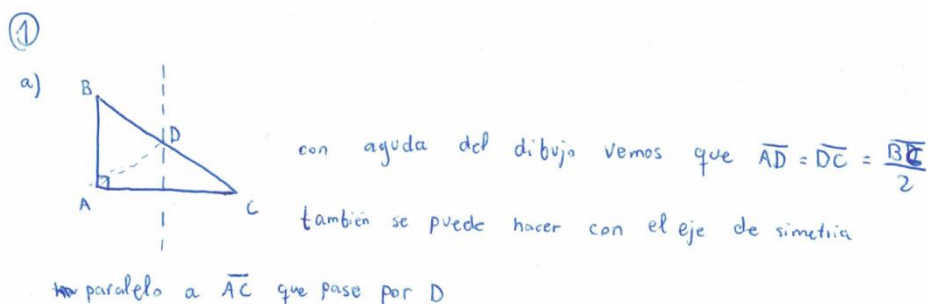 ①
a)
B
D
A
C
con aguda del dibujo vemos que AD = DC = BC/2
también se puede hacer con el eje de simetria
paralelo a AC que pase por D